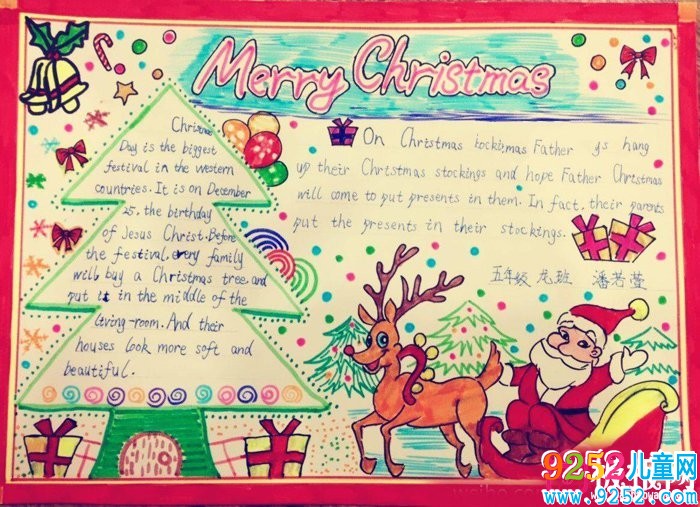 Merry Christmas
Christmas
Day is the biggest
festival in the western
countries. It is on December
25, the birthday
of Jesus Christ. Before
the festival, every family
will buy a Christmas tree, and
put it in the middle of the
living-room. And their
houses look more soft and
beautiful.
On Christmas hang
up their Christmas stockings and hope Father Christmas
will come to put presents in them. In fact, their parents
put the presents in their stockings.
五年级 龙班 潘若萱
9252儿童网
www.9252.com